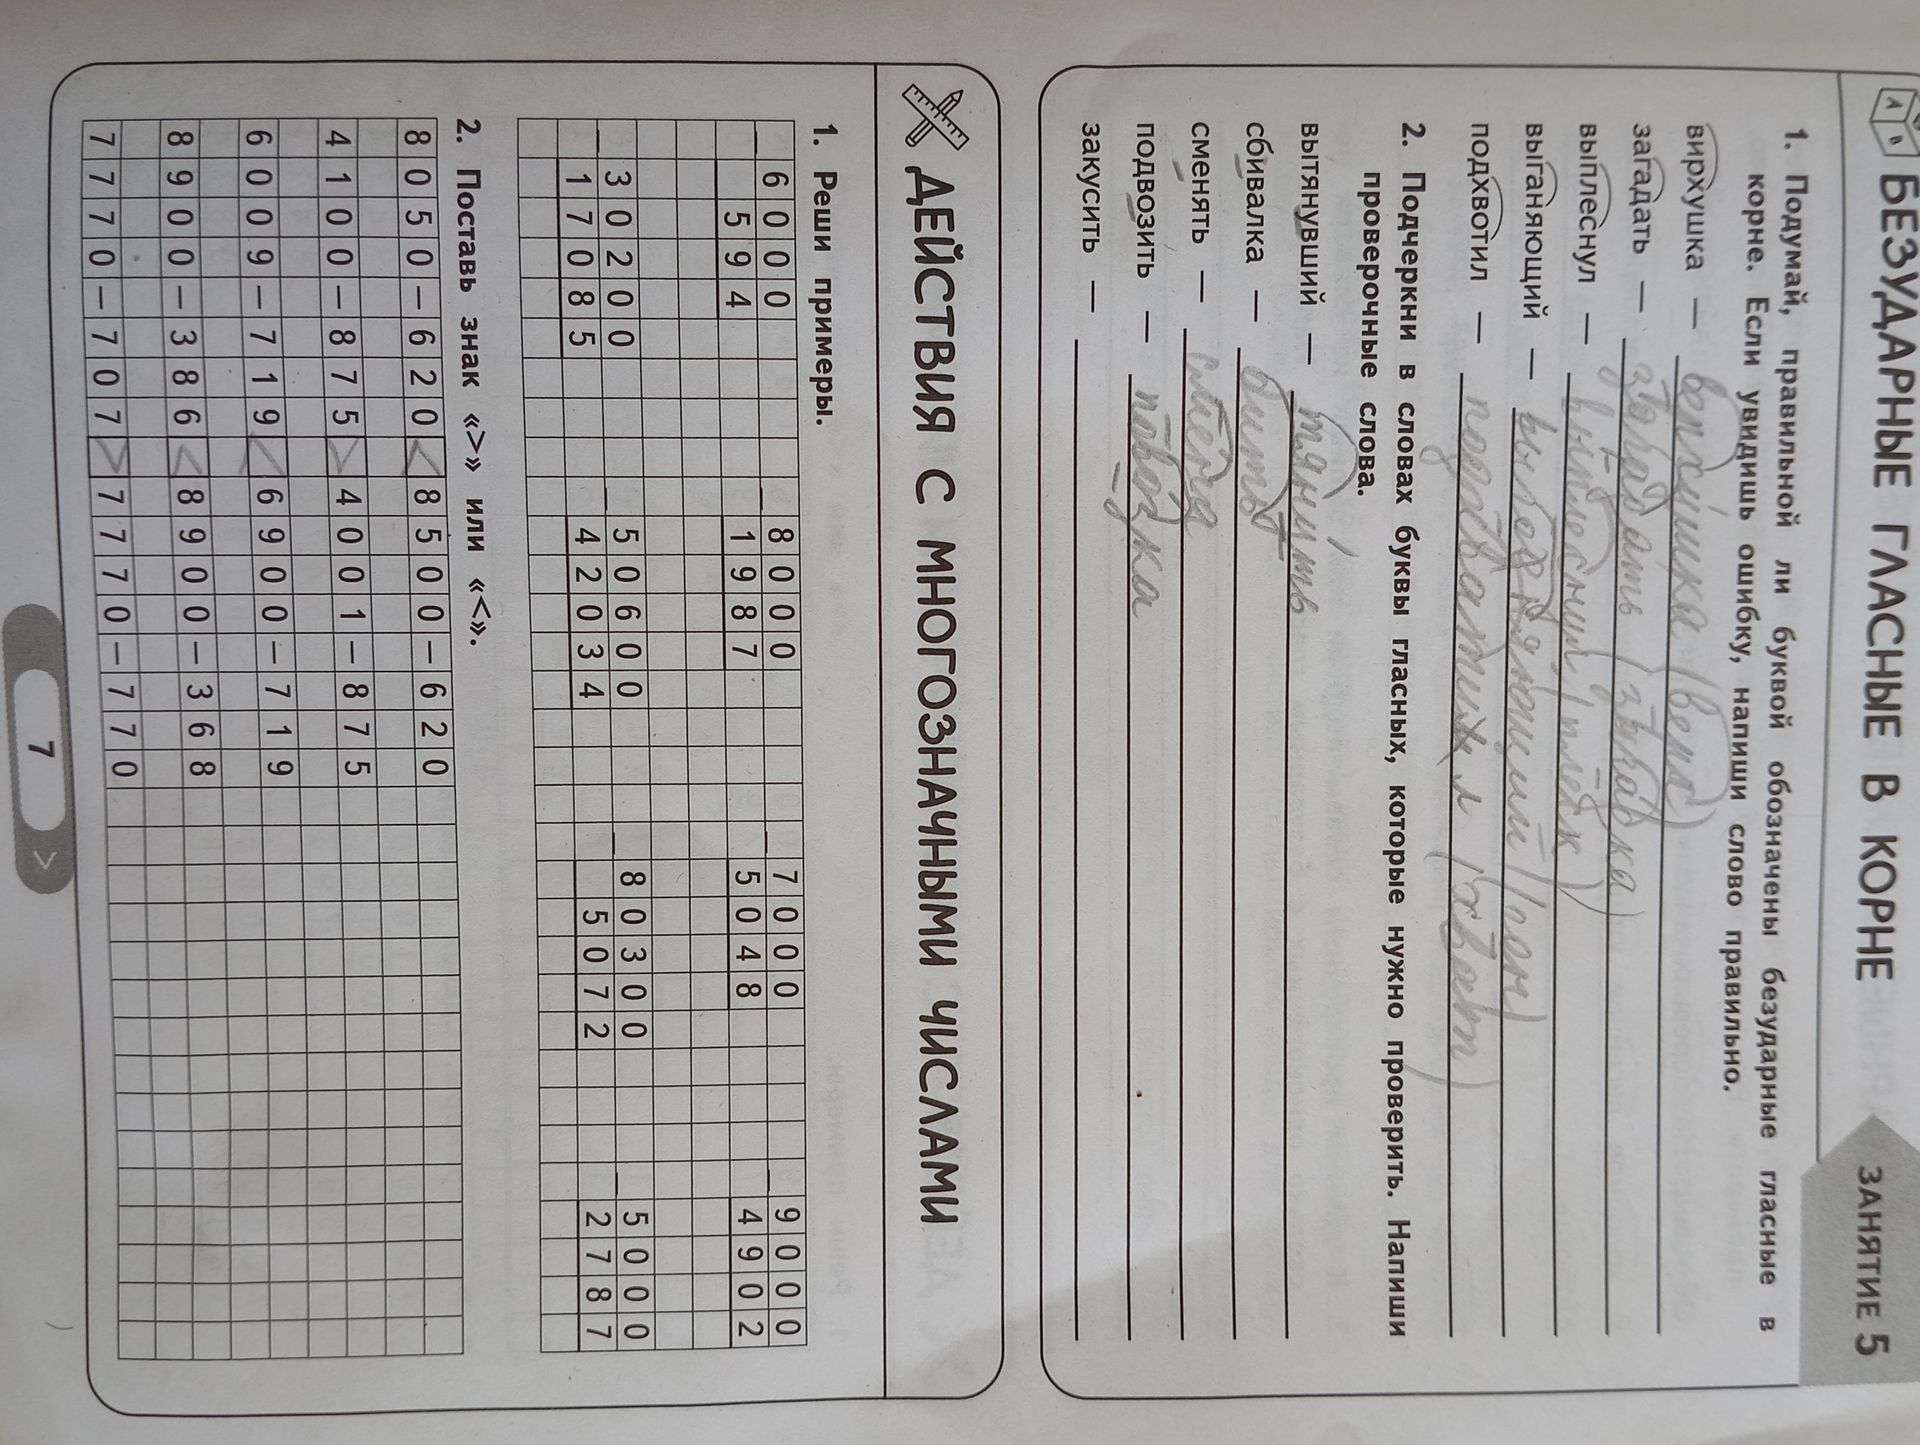 БЕЗУДАРНЫЕ ГЛАСНЫЕ В КОРНЕ
ЗАНЯТИЕ 5
1. Подумай, правильной ли буквой обозначены безударные гласные в
корне. Если увидишь ошибку, напиши слово правильно.
вирхушка — верхушка (верх)
загадать —
выплеснул — выплеснул (плеск)
выганяющий —
подхвотил — (хват)
2. Подчеркни в словах буквы гласных, которые нужно проверить. Напиши
проверочные слова.
вытянувший — тянуть
сбивалка — бить
сменять — смена
подвозить — повозка
закусить —
ДЕЙСТВИЯ С МНОГОЗНАЧНЫМИ ЧИСЛАМИ
1. Реши примеры.
_ 6000 _ 8000 _ 7000 _ 9000
594 1987 5048 4902
_ 30200 _ 50600 _ 80300 _ 5000
17085 42034 5072 2787
2. Поставь знак «>» или «<».
8050–620<8500–620
4100–875>4001–875
6009–719<6900–719
8900–386<8900–368
7770–707>7770–770
7 >